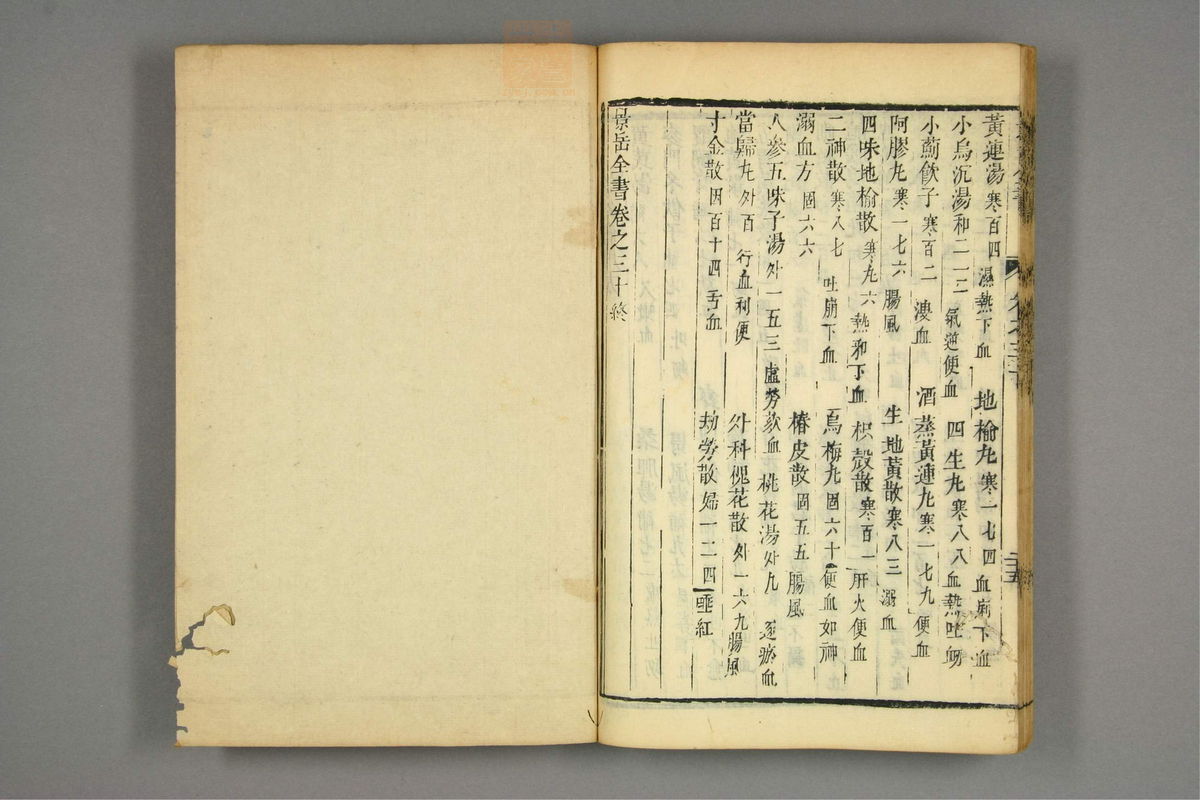 黃連湯寒百四 濕熱下血 地榆丸寒一七四 血崩下血
小烏沉湯和二一三 氣逆便血 四生丸寒八八 血熱吐衂
小薊飲子寒百二 溲血 酒蒸黃連丸寒一七九 便血
阿膠丸寒一七六 腸風 生地黃散寒八三 溺血
四味地榆散寒九六 熱和下血 枳殼散寒百一 肝火便血
二神散寒八七 吐崩下血 烏梅丸固六十 便血如神
溺血方固六六 椿皮散固五五 腸風
人參五味子湯外一五三 虛勞欬血 桃花湯外九 逐瘀血
當歸丸外百 行血利便 外科槐花散外一六九 腸風
寸金散因百十四 舌血 劫勞散婦一二四 唾紅
景岳全書卷之三十終